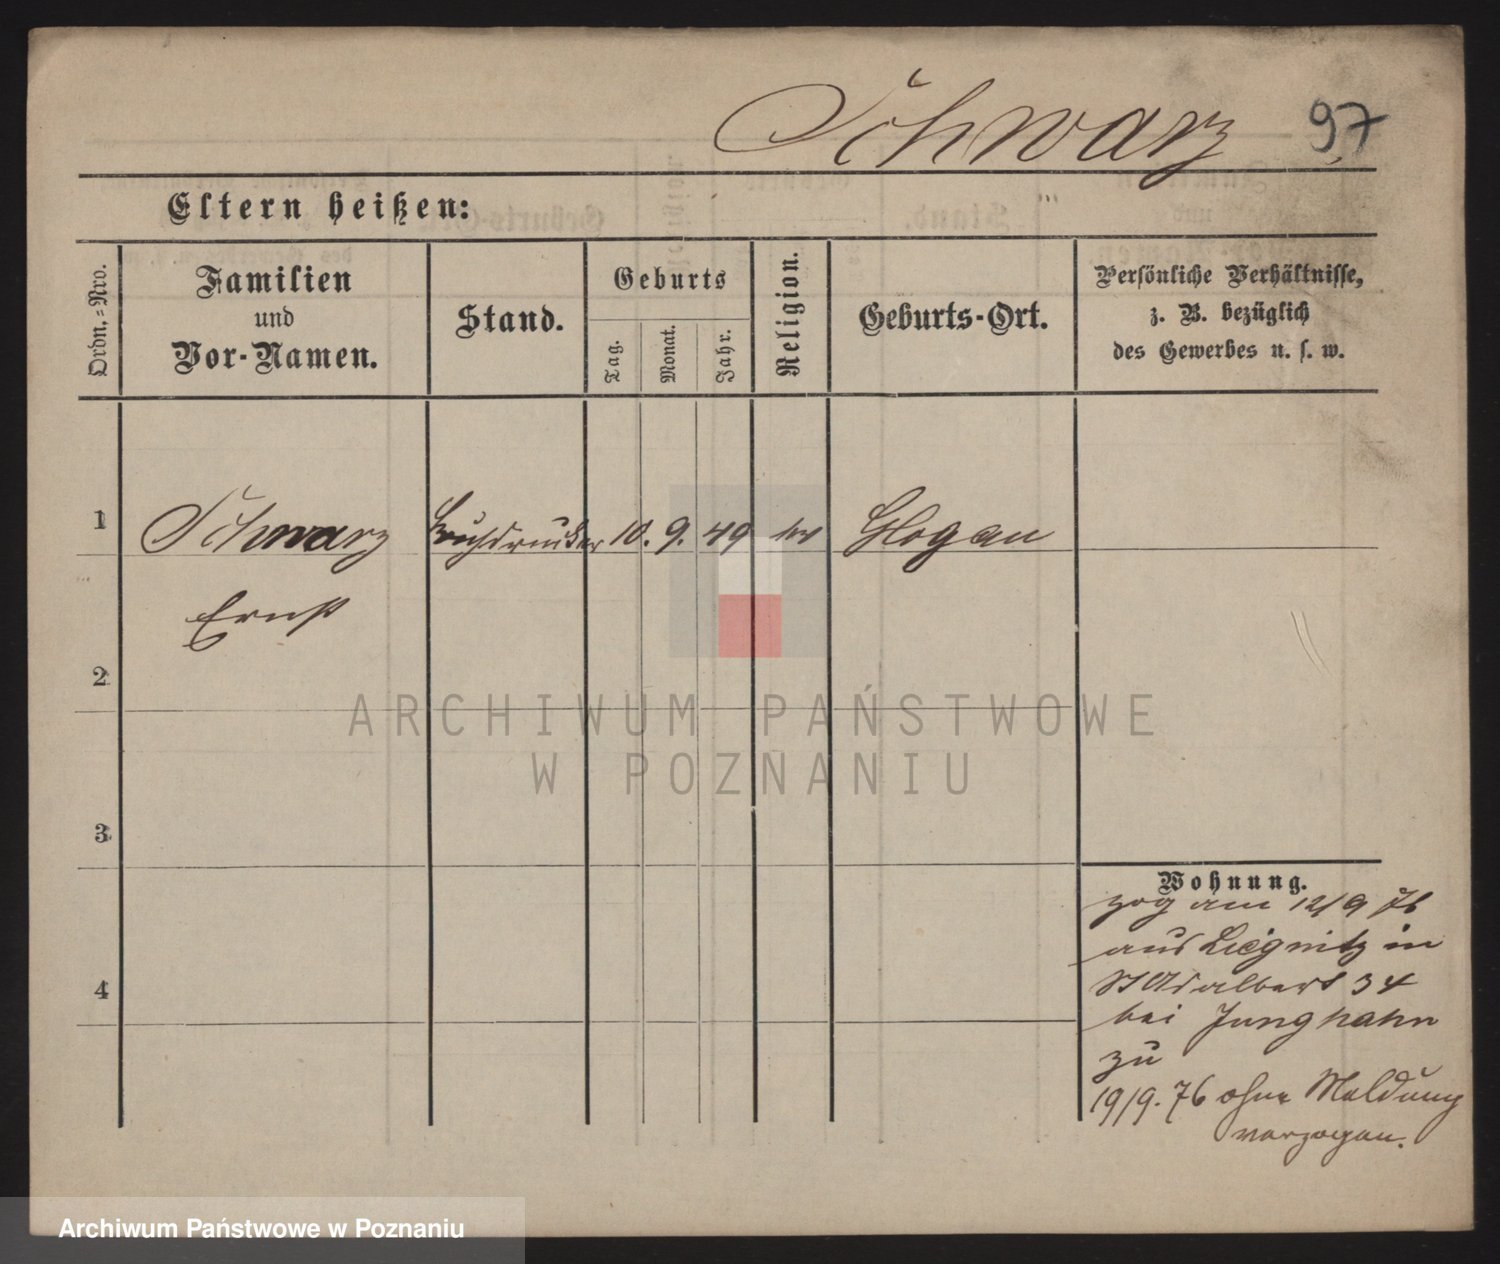 Schwarz 97
Eltern heißen:
Ordn.=Nro.
Familien
und
Vor-Namen.
Stand.
Geburts
Tag.
Monat.
Jahr.
Religion.
Geburts-Ort.
Persönliche Verhältnisse,
z. B. bezüglich
des Gewerbes u. s. w.
1 Schwarz Buchdrucker 10. 9. 49 ev Glogau
Ernst
2
3
4
Wohnung.
zog am 12/9 76
aus Liegnitz in
St Adalbert 34
bei Junghahn
zu
19/9. 76 ohne Meldung
verzogen.
ARCHIWUM PAŃSTWOWE
W POZNANIU
Archiwum Państwowe w Poznaniu